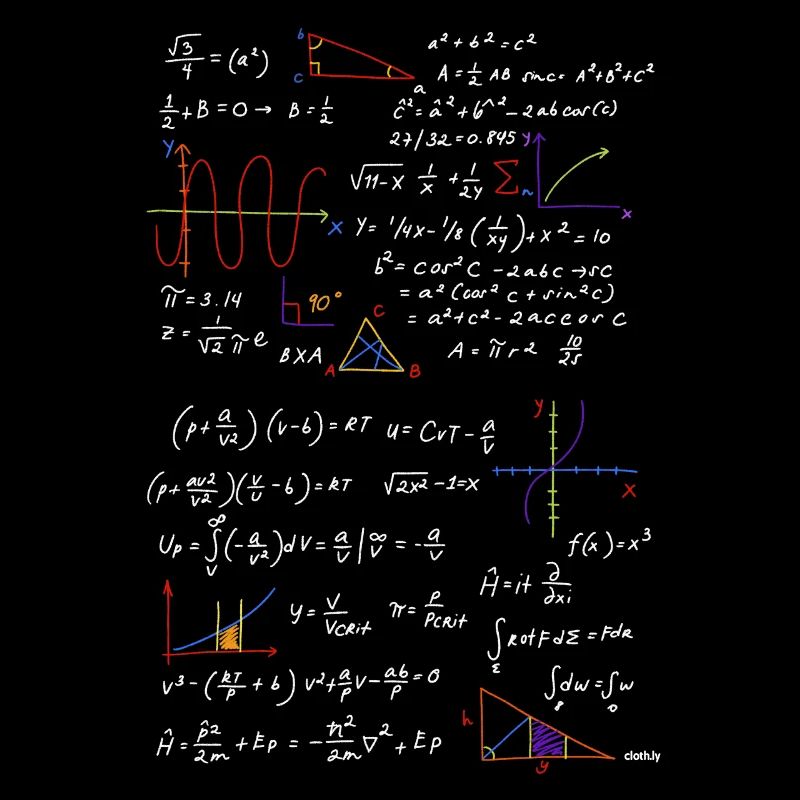 √3/4 = (a²)
b
c
a
a² + b² = c²
A = 1/2 AB sinc = A²+B²+C²
1/2 + B = 0 → B = 1/2
ĉ² = â² + b^² - 2ab cos(c)
27/32 = 0.845
y
x
Y
X
√11-x 1/x + 1/2y Σ n
Y = 1/4x - 1/8 (1/xy) + x² = 10
b² = cos² C - 2abc → sc
= a² (cos² c + sin² c)
= a² + c² - 2ac cos C
π = 3.14
90°
z = 1/√2 π e
BXA
C
A
B
A = π r 2 10/25
(p + a/v2) (v-b) = RT
u = CvT - a/v
(p + av2/v2)(v/u - b) = kT
√2x² - 1 = x
y
x
f(x) = x³
Up = ∫ᵥ^∞ (-a/v²) dV = a/v |∞ v = -a/v
Ĥ = it ∂/∂xi
y = V/VCRit
π = P/PCRit
∫Σ RotFdΣ = Fdr
v³ - (RT/P + b) v² + a/p v - ab/p = 0
∫8 dw = ∫0 w
Ĥ = p̂2/2m + Ep = -ℏ²/2m ∇² + Ep
h
y
cloth.ly